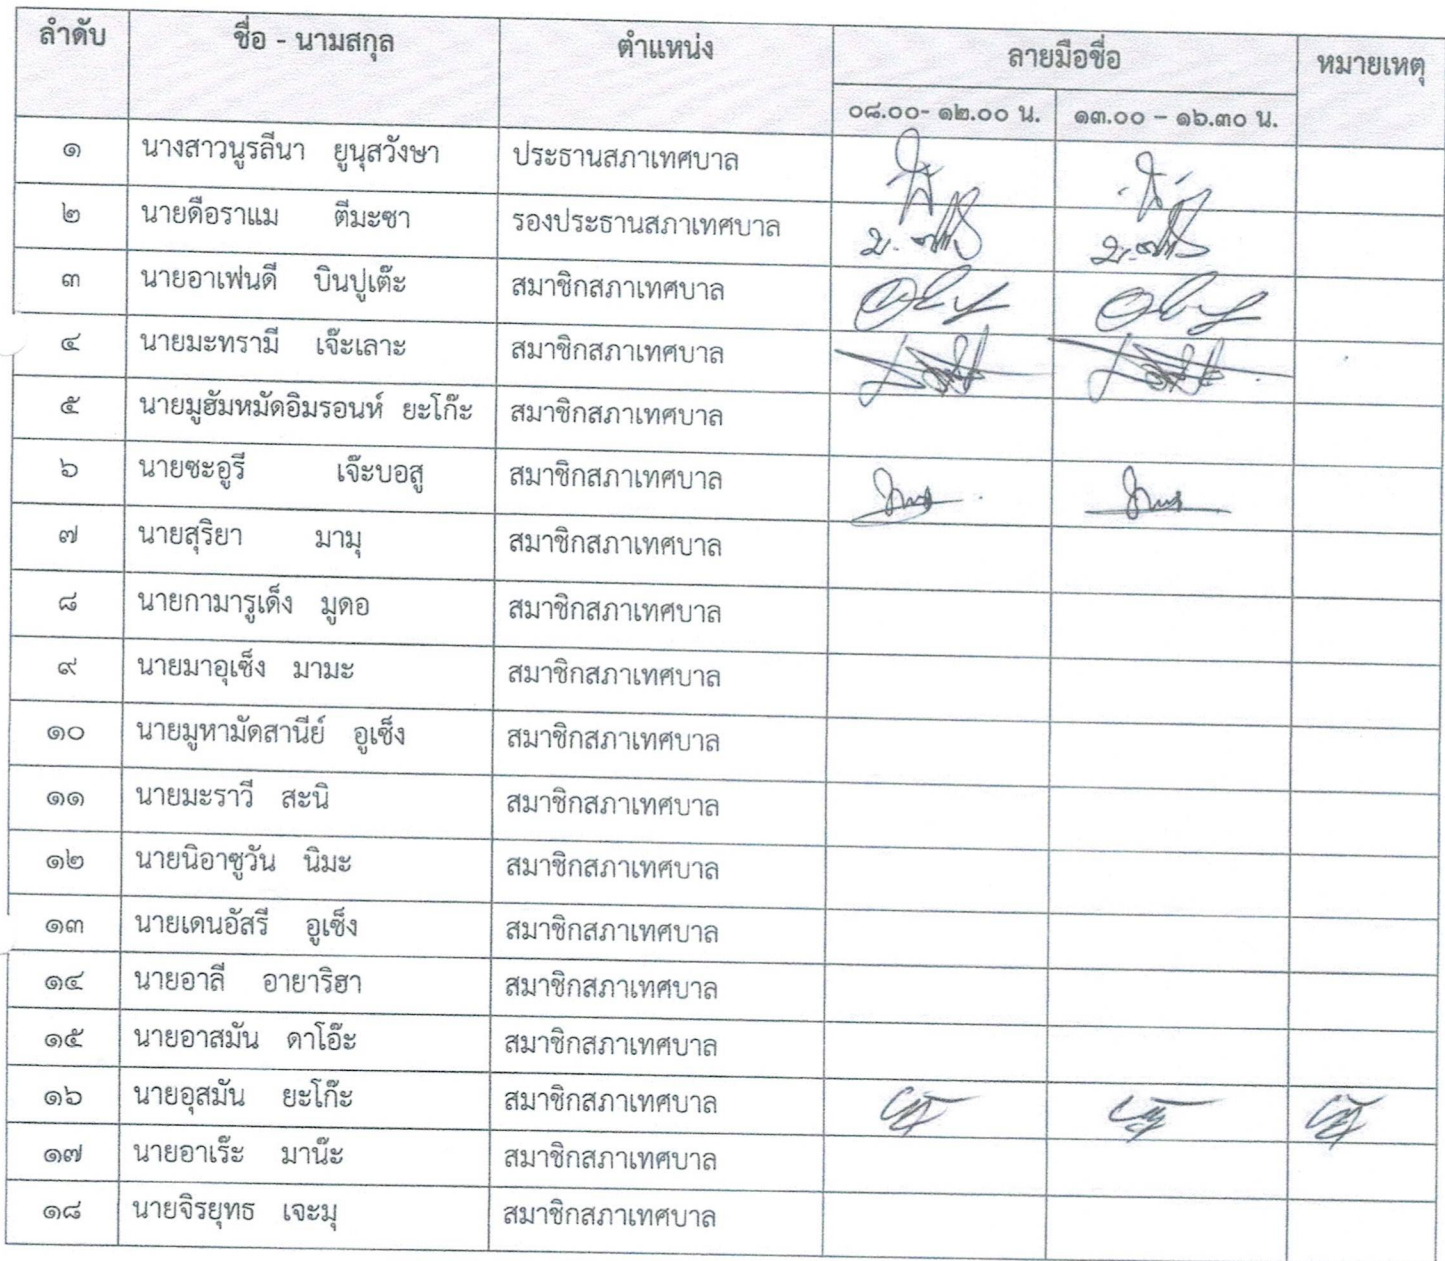 ลำดับ ชื่อ - นามสกุล ตำแหน่ง ลายมือชื่อ หมายเหตุ
๐๘.๐๐- ๑๒.๐๐ น. ๑๓.๐๐ – ๑๖.๓๐ น.
๑ นางสาวนูรลีนา ยูนุสวังษา ประธานสภาเทศบาล
๒ นายดือราแม ตีมะซา รองประธานสภาเทศบาล
๓ นายอาเฟนดี บินปูเต๊ะ สมาชิกสภาเทศบาล
๔ นายมะทรามี เจ๊ะเลาะ สมาชิกสภาเทศบาล
๕ นายมูฮัมหมัดอิมรอนห์ ยะโก๊ะ สมาชิกสภาเทศบาล
๖ นายซะอูรี เจ๊ะบอสู สมาชิกสภาเทศบาล
๗ นายสุริยา มามุ สมาชิกสภาเทศบาล
๘ นายกามารูเด็ง มูดอ สมาชิกสภาเทศบาล
๙ นายมาอุเซ็ง มามะ สมาชิกสภาเทศบาล
๑๐ นายมูหามัดสานีย์ อูเซ็ง สมาชิกสภาเทศบาล
๑๑ นายมะราวี สะนิ สมาชิกสภาเทศบาล
๑๒ นายนิอาซูวัน นิมะ สมาชิกสภาเทศบาล
๑๓ นายเดนอัสรี อูเซ็ง สมาชิกสภาเทศบาล
๑๔ นายอาลี อายาริฮา สมาชิกสภาเทศบาล
๑๕ นายอาสมัน ดาโอ๊ะ สมาชิกสภาเทศบาล
๑๖ นายอุสมัน ยะโก๊ะ สมาชิกสภาเทศบาล
๑๗ นายอาเร๊ะ มาน๊ะ สมาชิกสภาเทศบาล
๑๘ นายจิรยุทธ เจะมุ สมาชิกสภาเทศบาล